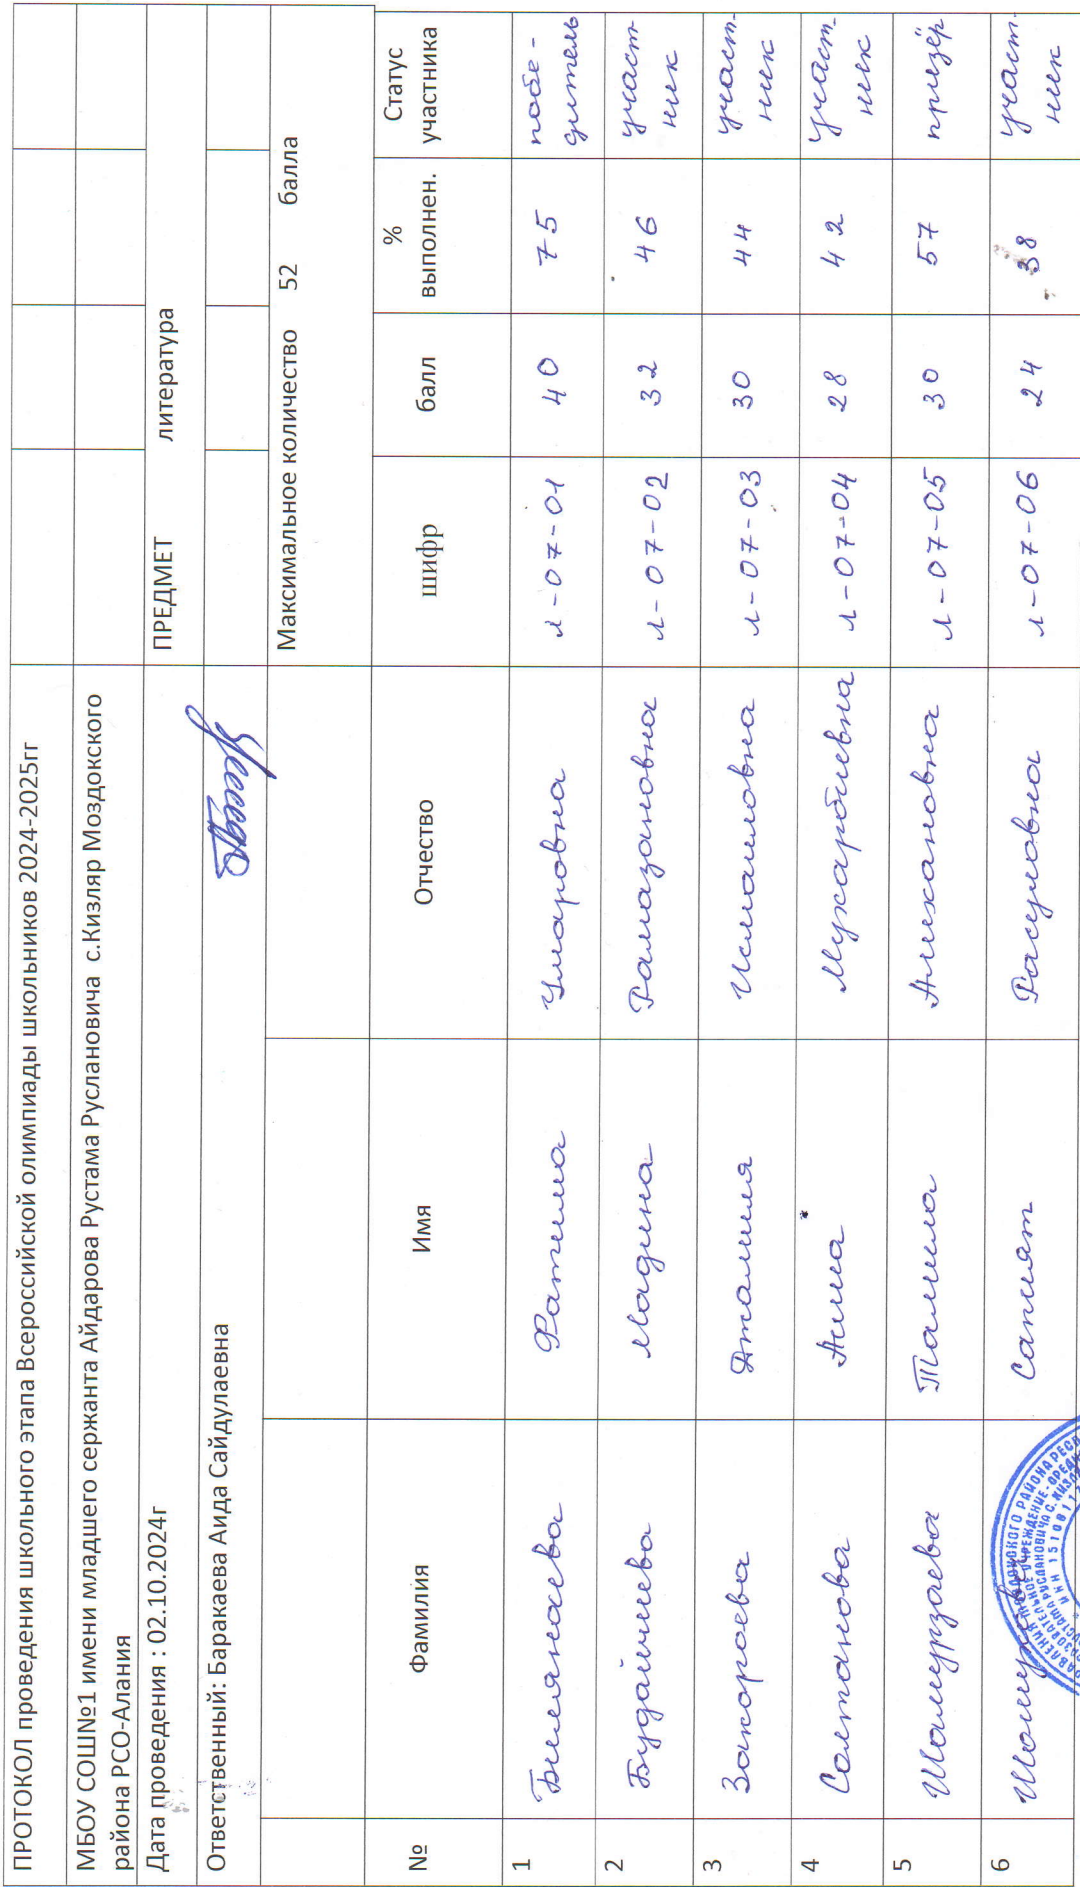 ПРОТОКОЛ проведения школьного этапа Всероссийской олимпиады школьников 2024-2025гг
МБОУ СОШ№1 имени младшего сержанта Айдарова Рустама Руслановича с.Кизляр Моздокского
района РСО-Алания
Дата проведения : 02.10.2024г ПРЕДМЕТ литература
Ответственный: Баракаева Аида Сайдулаевна
Максимальное количество 52 балла
№ Фамилия Имя Отчество шифр балл % выполнен. Статус участника
1 Билянаева Фатима Умаровна л-07-01 40 75 побе-
дитель
2 Будайчиева Мадина Рамазановна л-07-02 32 46 участ
ник
3 Закароева Джамиля Исмаиловна л-07-03 30 44 участ-
ник
4 Солтанова Алима Мукарбиевна л-07-04 28 42 участ-
ник
5 Шамурзаева Тамила Алихановна л-07-05 30 57 призёр
6 Сапият Расуловна л-07-06 24 38 участ-
ник